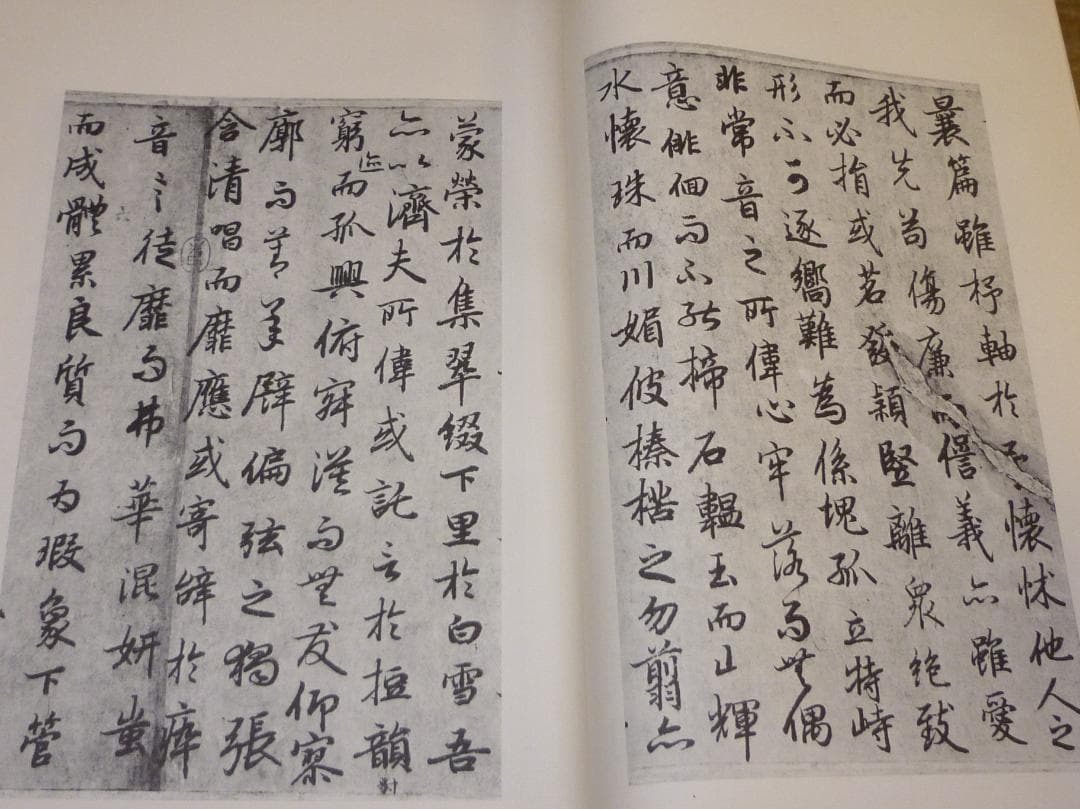 曩篇雖杼軸於予懷怵他人之
我先苟傷廉而諐義亦雖愛
而必捐或苕發穎竪離眾絕致
形不可逐嚮難為係塊孤立特峙
非常音之所偉心牢落而無偶
意徘徊而不能揥石韞玉而山輝
水懷珠而川媚彼榛楛之勿翦亦
蒙榮於集翠綴下里於白雪吾
亦以濟夫所偉或託言於短韻對
窮迹而孤興俯寂漠而無友仰寥
廓而莫承譬偏弦之獨張
含清唱而靡應或寄辭於瘁
音言徒靡而弗華混妍蚩
而成體累良質而為瑕象下管